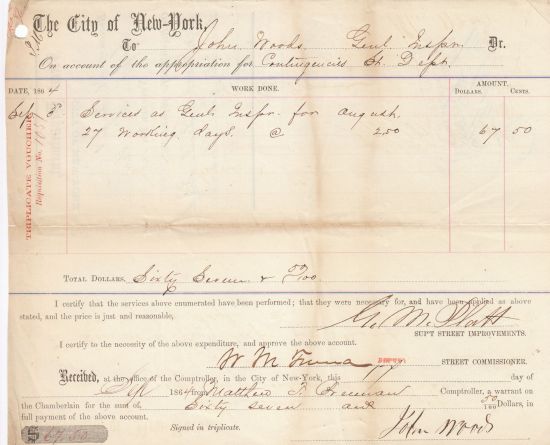 The City of New-York,
To John Woods, Genl Inspr. Dr.
On account of the appropriation for Contingencies St. Dept.
DATE, 1864 WORK DONE. AMOUNT.
DOLLARS. CENTS.
Sep Services as Genl Inspr. for August
27 Working days @ 2.50 67 50
TRIPLICATE VOUCHER
Requisition No.
TOTAL DOLLARS, Sixty Seven &
I certify that the services above enumerated have been performed; that they were necessary for, and have been applied as above
stated, and the price is just and reasonable,
SUPT STREET IMPROVEMENTS.
I certify to the necessity of the above expenditure, and approve the above account.
DEPUTY STREET COMMISSIONER.
Received, at the office of the Comptroller, in the City of New-York, this day of
1864 from Matthew T. Brennan Comptroller, a warrant on
the Chamberlain for the sum of Sixty seven and 50/100 Dollars, in
full payment of the above account.
$ 67.50 Signed in triplicate. John Woods